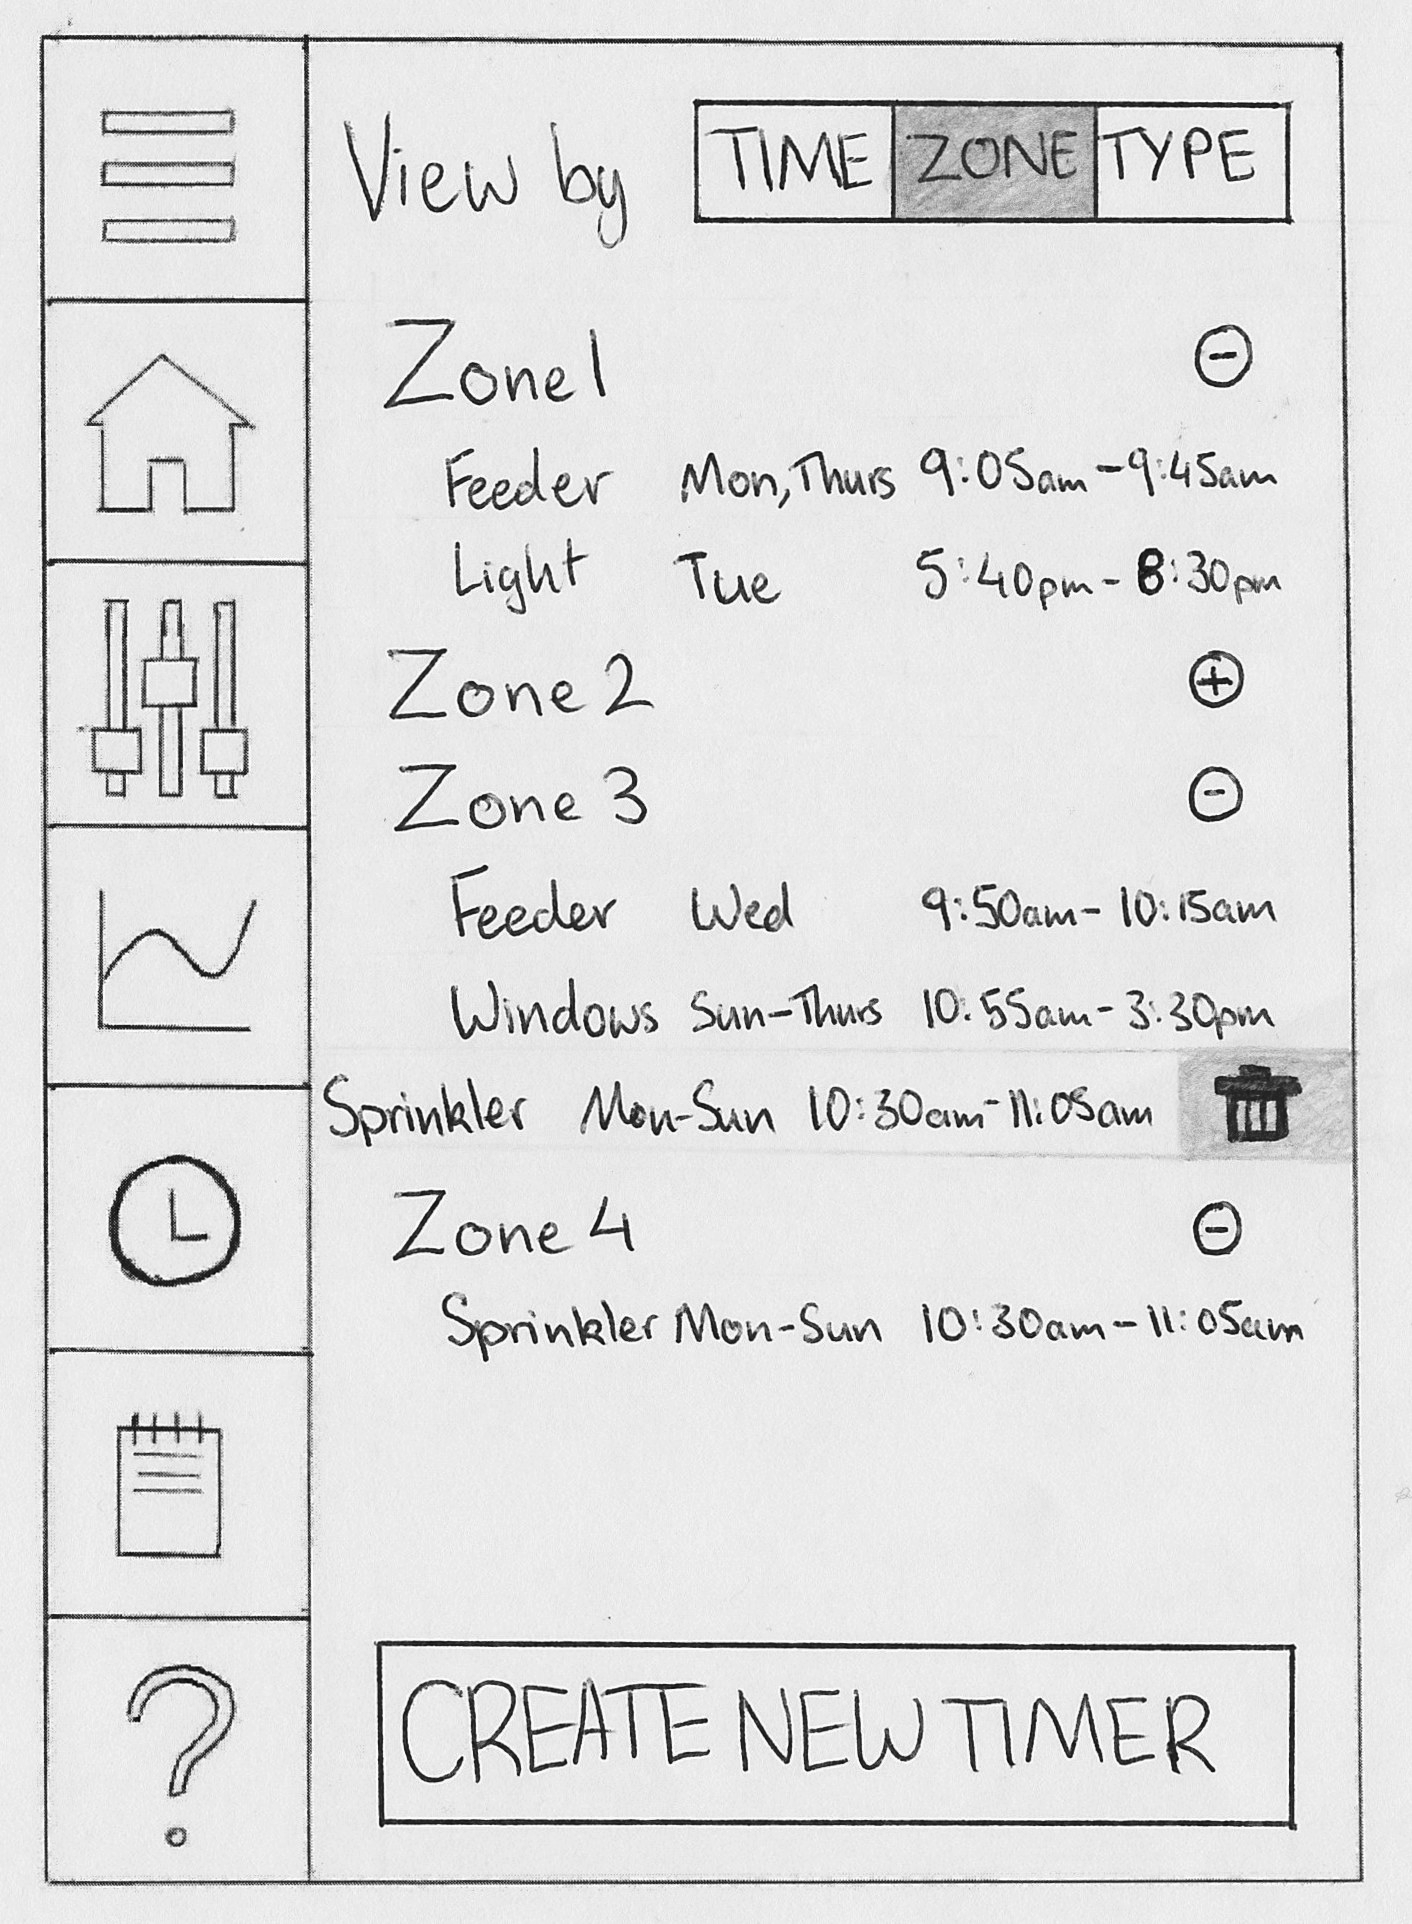 View by TIME ZONE TYPE
Zone 1
Feeder Mon, Thurs 9:05am - 9:45am
Light Tue 5:40pm - 8:30pm
Zone 2
Zone 3
Feeder Wed 9:50am - 10:15am
Windows Sun-Thurs 10:55am - 3:30pm
Sprinkler Mon-Sun 10:30am - 11:05am
Zone 4
Sprinkler Mon-Sun 10:30am - 11:05am
CREATE NEW TIMER
?